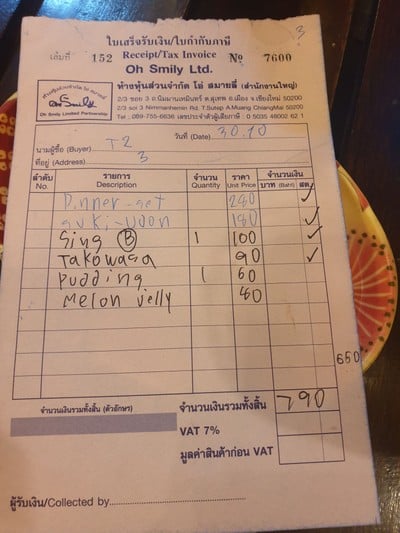 3
ใบเสร็จรับเงิน/ใบกำกับภาษี
เล่มที่ 152 Receipt/Tax Invoice № 7600
Oh Smily Ltd.
ห้างหุ้นส่วนจำกัด โอ สมายลี่
Oh Smily
Oh Smily Limited Partnership
ห้างหุ้นส่วนจำกัด โอ่ สมายลี่ (สำนักงานใหญ่)
2/3 ซอย 3 ถ.นิมมานเหมินทร์ ต.สุเทพ อ.เมือง จ.เชียงใหม่ 50200
2/3 soi 3 Nimmanhemin Rd. T.Sutep A.Muang ChiangMai 50200
Tel : 089-755-6636 เลขประจำตัวผู้เสียภาษี 0 5035 48002 62 1
T2 วันที่ (Date) 30.10
นามผู้ซื้อ (Buyer)
ที่อยู่ (Address) 3
ลำดับ รายการ จำนวน ราคา จำนวนเงิน
No. Description Quantity Unit Price บาท (Baht) สต.
Dinner-set 280 ✓
suki-udon 180 ✓
Sing B 1 100 ✓
Takowasa 90 ✓
Pudding 1 60
Melon jelly 80
650
จำนวนเงินรวมทั้งสิ้น (ตัวอักษร) จำนวนเงินรวมทั้งสิ้น 790
VAT 7%
มูลค่าสินค้าก่อน VAT
ผู้รับเงิน/Collected by